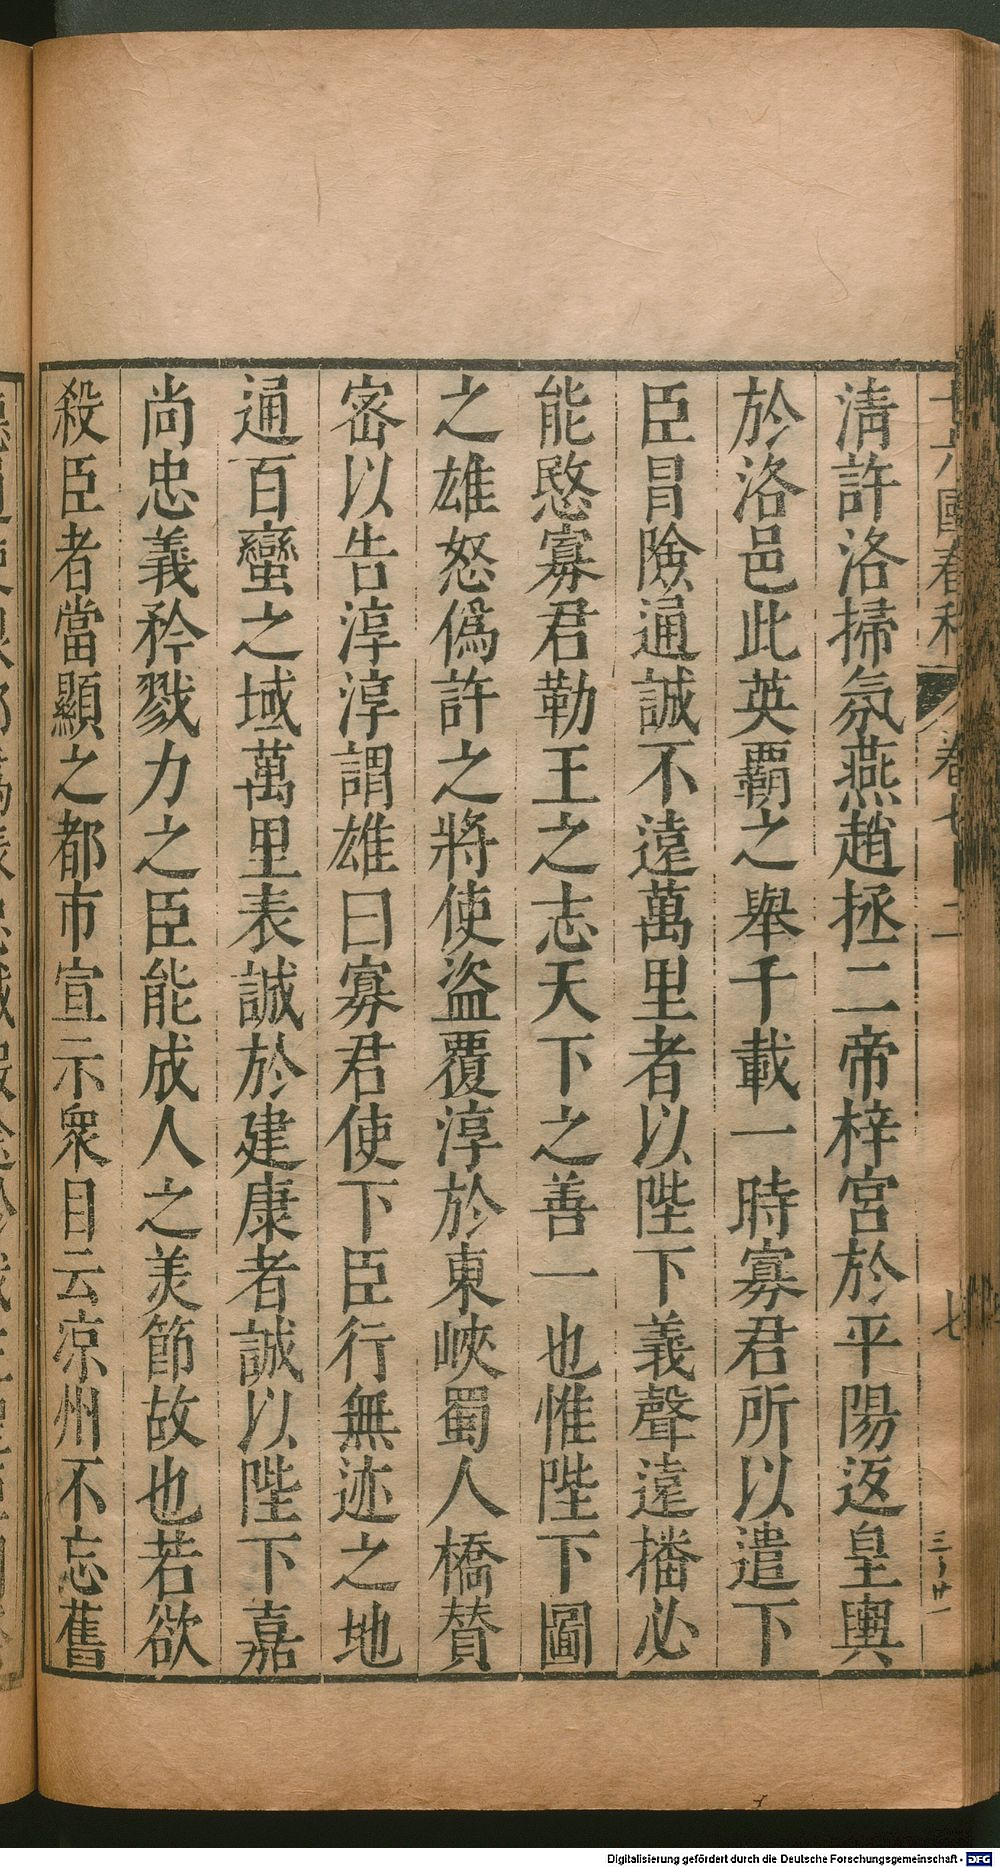 十六國春秋 卷七十二 七
清許洛掃氛燕趙拯二帝梓宮於平陽返皇輿
於洛邑此英覇之舉千載一時寡君所以遣下
臣冒險通誠不遠萬里者以陛下義聲遠播必
能愍寡君勒王之志天下之善一也惟陛下圖
之雄怒偽許之將使盜覆淳於東峽蜀人橋賛
宻以告淳淳謂雄曰寡君使下臣行無迹之地
通百蠻之域萬里表誠於建康者誠以陛下嘉
尚忠義矜戮力之臣能成人之美節故也若欲
殺臣者當顯之都市宣示衆目云涼州不忘舊
Digitalisierung gefördert durch die Deutsche Forschungsgemeinschaft - DFG